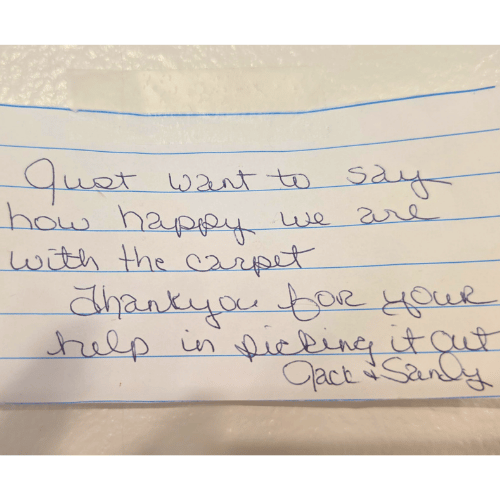 Just want to say
how happy we are
with the carpet
Thankyou for your
help in picking it out
Jack + Sandy